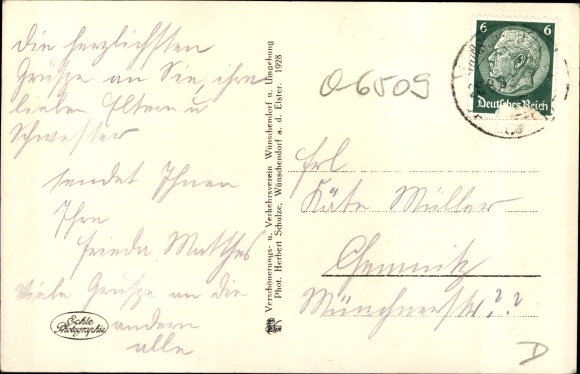 Die herzlichsten
Grüße an Sie, ihre
lieben Eltern u
Schwester
sendet Ihnen
Ihre
Frieda Matthes
Viele Grüße an die
andern
alle
Echte
Photographie
Verschönerungs- u. Verkehrsverein Wünschendorf u. Umgebung
Phot. Herbert Schulze, Wünschendorf a. d. Elster. 1928
06509
6 6
Deutsches Reich
Frl
Käte Müller
Chemnitz
Münchnerstr. ??
D